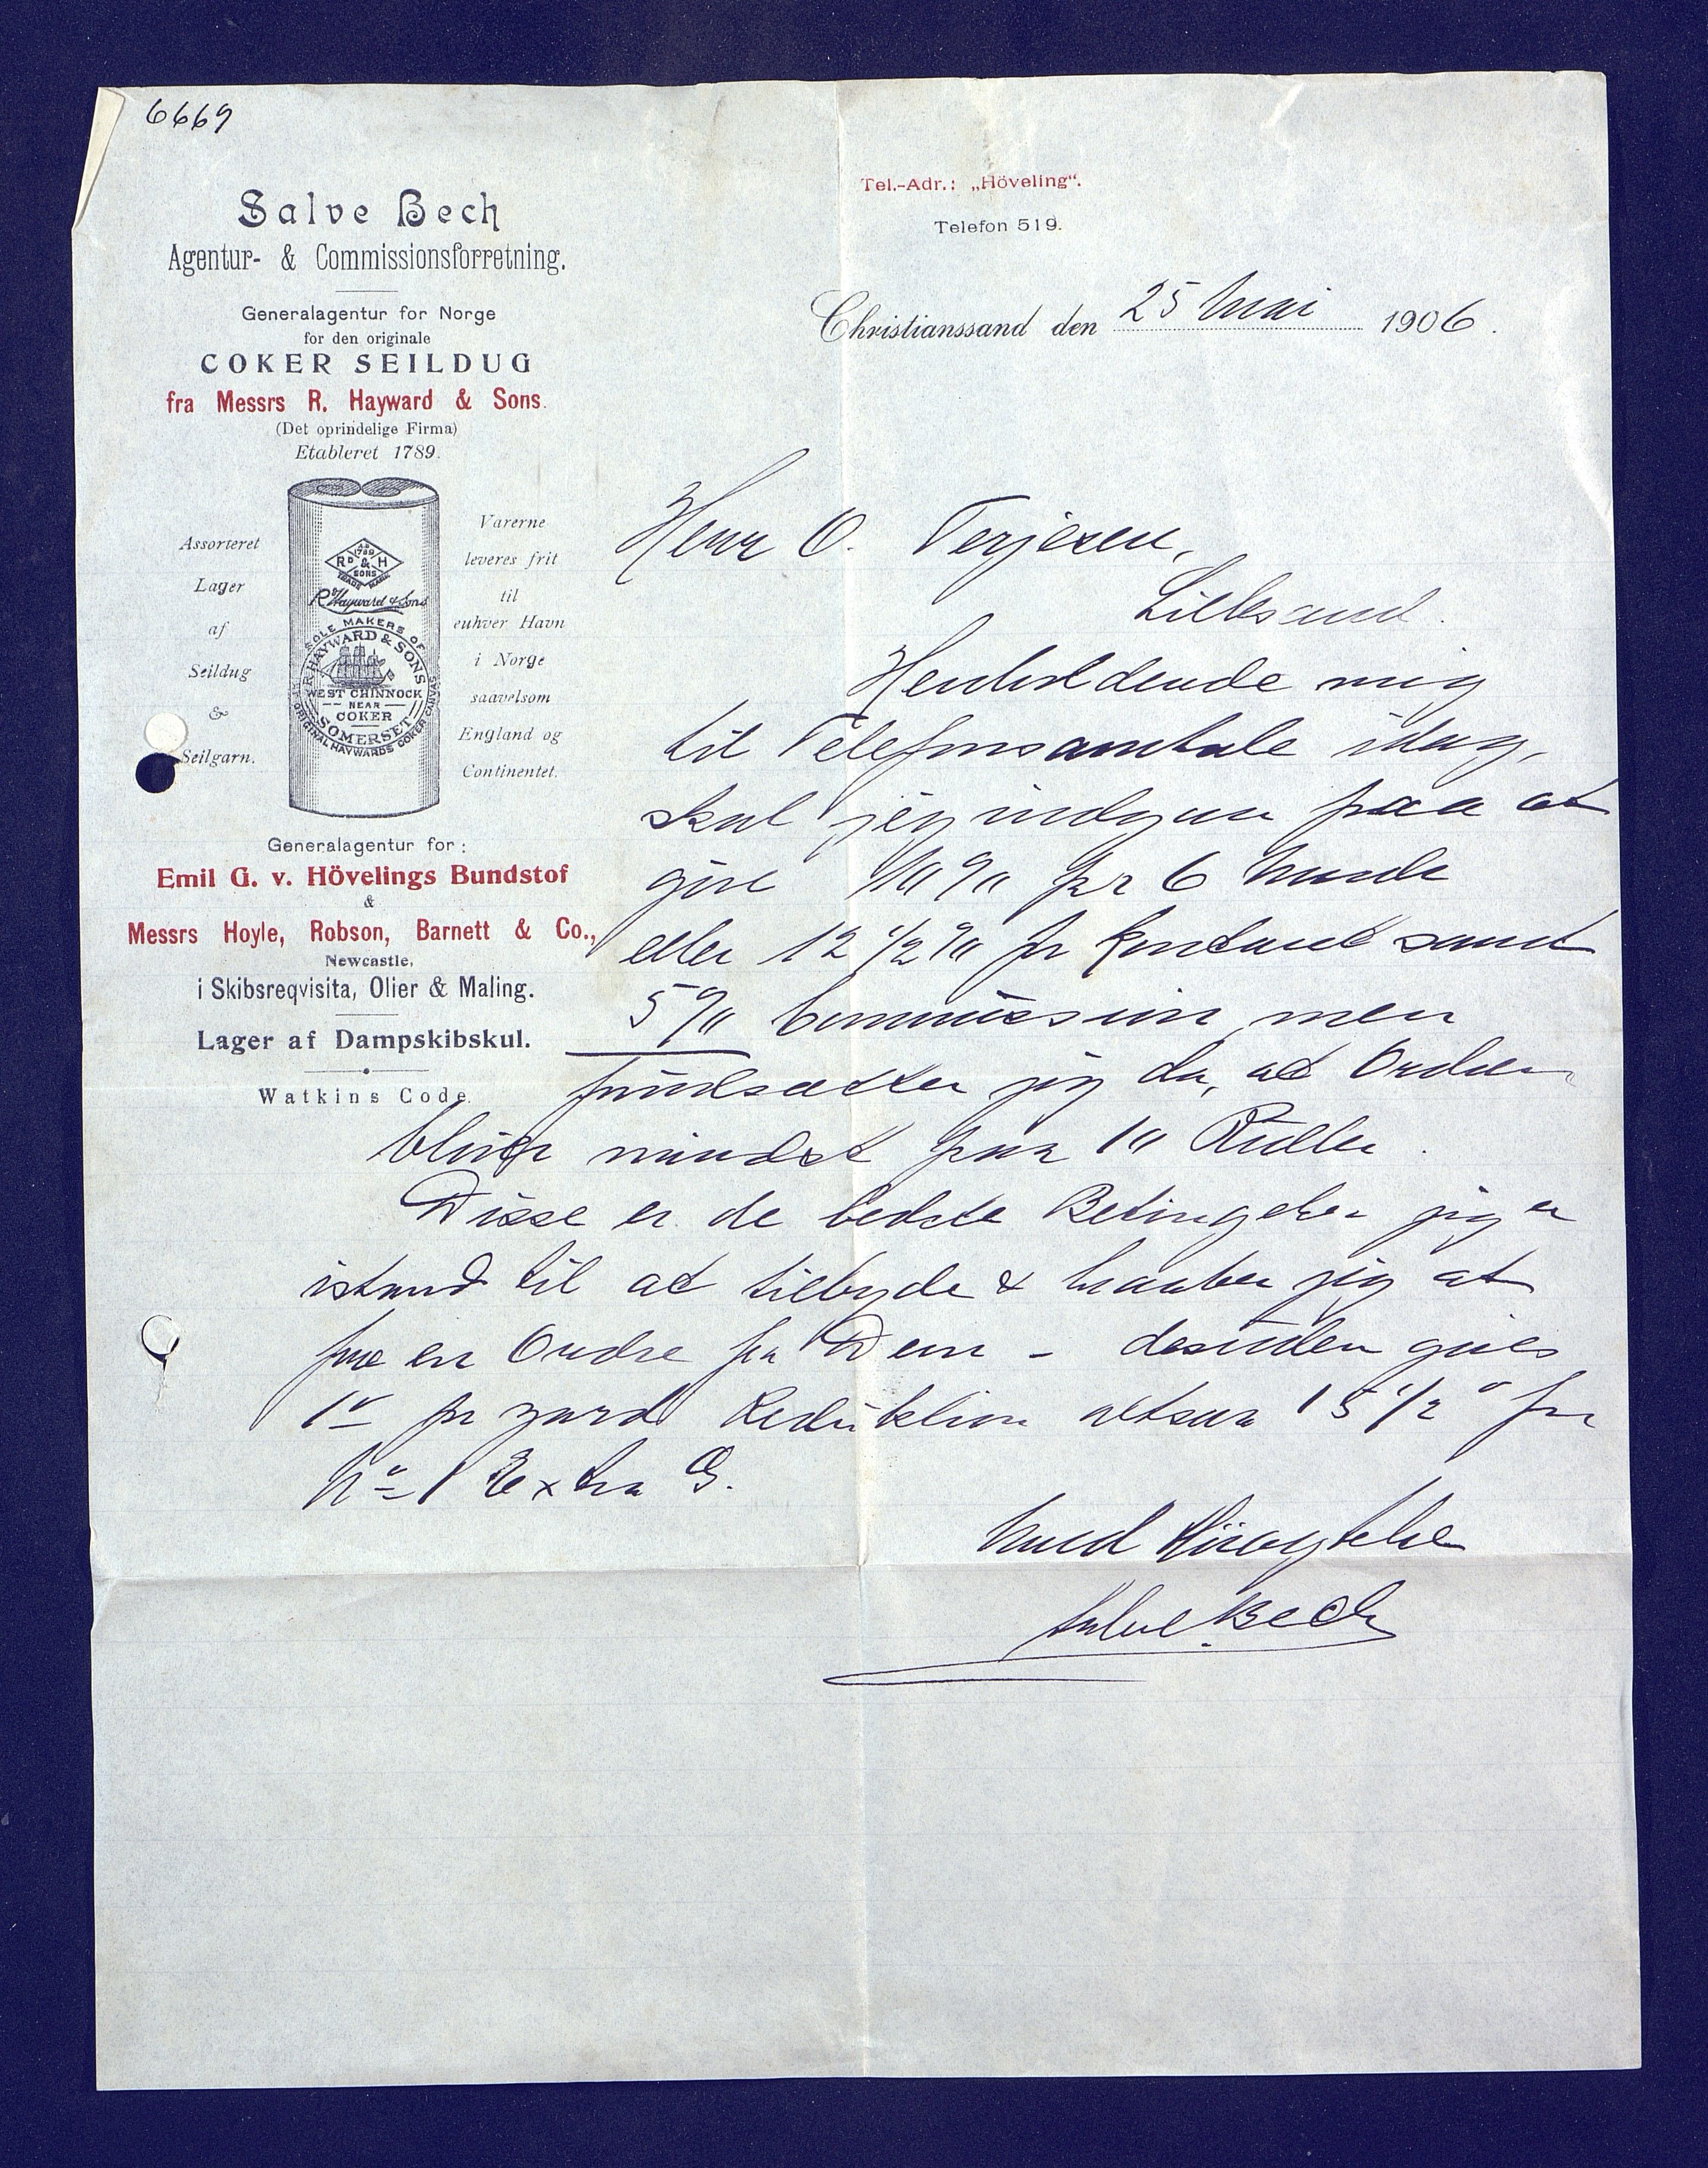 6669
Salve Bech
Agentur- & Commissionsforretning.
Generalagentur for Norge
for den originale
COKER SEILDUG
fra Messrs R. Hayward & Sons.
(Det oprindelige Firma)
Etableret 1789.
Assorteret
Lager
af
Seildug
&
Seilgarn.
AD 1789
RD & H
SONS
TRADE MARK
R Hayward & Sons
SOLE MAKERS OF
R. HAYWARD & SONS
WEST CHINNOCK
NEAR
COKER
SOMERSET
ORIGINAL HAYWARDS COKER CANVAS
Varerne
leveres frit
til
enhver Havn
i Norge
saavelsom
England og
Continentet.
Generalagentur for:
Emil G. v. Hövelings Bundstof
&
Messrs Hoyle, Robson, Barnett & Co.,
Newcastle,
i Skibsreqvisita, Olier & Maling.
Lager af Dampskibskul.
Watkins Code.
Tel.-Adr.: „Höveling“.
Telefon 519.
Christianssand den 25 Mai 1906.
Herr O. Terjesen,
Lillesand.
Henholdende mig
til Telefonsamtale idag,
skal jeg indgaa paa at
give 10% pr 6 Mnde
eller 12 1/2 % pr Kontant samt
5% Commission, men
forudsætter jeg da, at Orderen
bliver mindst paa 10 Ruller.
Disse er de bedste Betingelser jeg er
istand til at tilbyde & haaber jeg at
faae en Ordre fra Dem - desuden gives
1d pr yard Reduktion altsaa 15 1/2 d for
No 1 Extra G.
Med Høiagtelse
Salve Bech